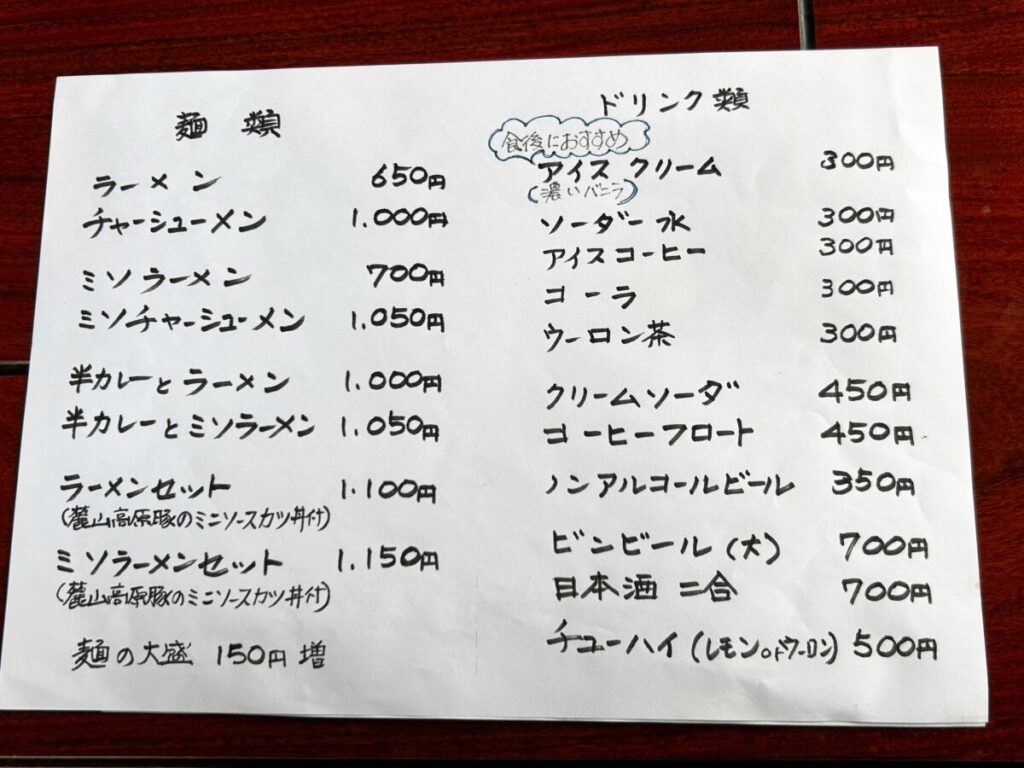 麺 類
ラーメン 650円
チャーシューメン 1.000円
ミソラーメン 700円
ミソチャーシューメン 1.050円
半カレーとラーメン 1.000円
半カレーとミソラーメン 1.050円
ラーメンセット 1.100円
(麓山高原豚のミニソースカツ丼付)
ミソラーメンセット 1.150円
(麓山高原豚のミニソースカツ丼付)
麺の大盛 150円増
ドリンク類
食後におすすめ
アイスクリーム 300円
(濃いバニラ)
ソーダー水 300円
アイスコーヒー 300円
コーラ 300円
ウーロン茶 300円
クリームソーダ 450円
コーヒーフロート 450円
ノンアルコールビール 350円
ビンビール(大) 700円
日本酒 二合 700円
チューハイ(レモンorウーロン) 500円